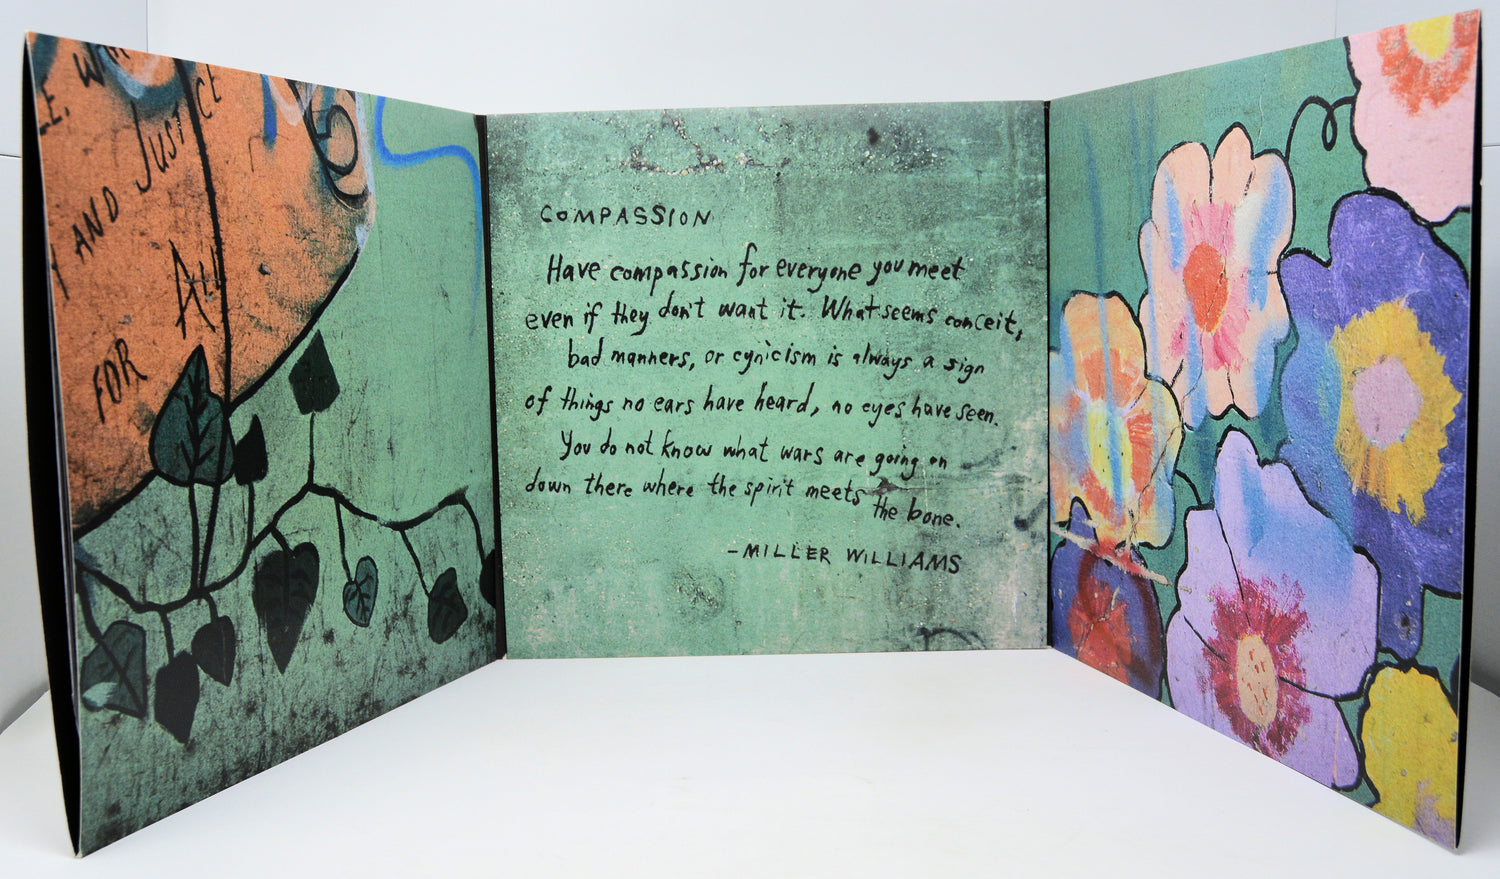 AND JUSTICE
FOR ALL
COMPASSION
Have compassion for everyone you meet
even if they don't want it. What seems conceit,
bad manners, or cynicism is always a sign
of things no ears have heard, no eyes have seen.
You do not know what wars are going on
down there where the spirit meets the bone.
-MILLER WILLIAMS